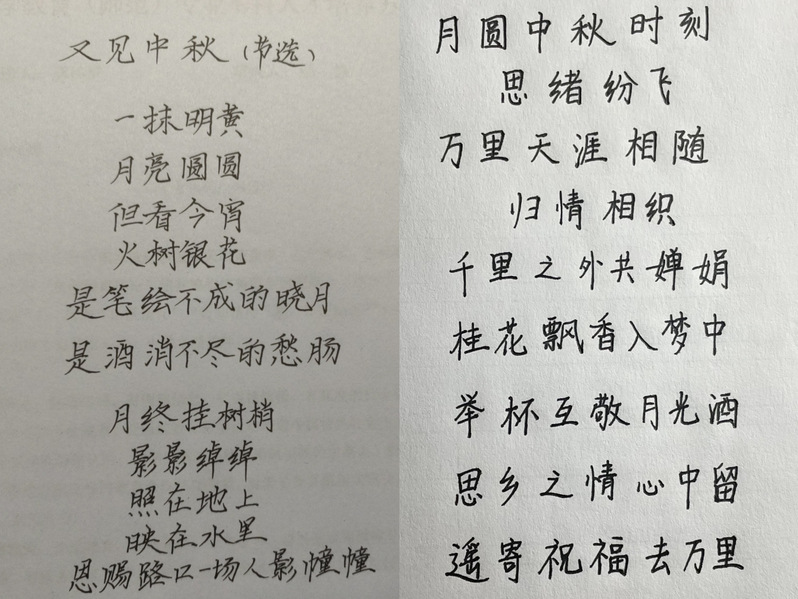 又见中秋（节选）
一抹明黄
月亮圆圆
但看今宵
火树银花
是笔绘不成的晓月
是酒消不尽的愁肠
月终挂树梢
影影绰绰
照在地上
映在水里
恩赐路口一场人影幢幢
月圆中秋时刻
思绪纷飞
万里天涯相随
归情相织
千里之外共婵娟
桂花飘香入梦中
举杯互敬月光酒
思乡之情心中留
遥寄祝福去万里